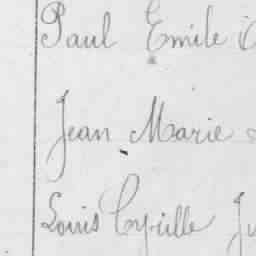 Paul Emile
Jean Marie
Louis Cyrille